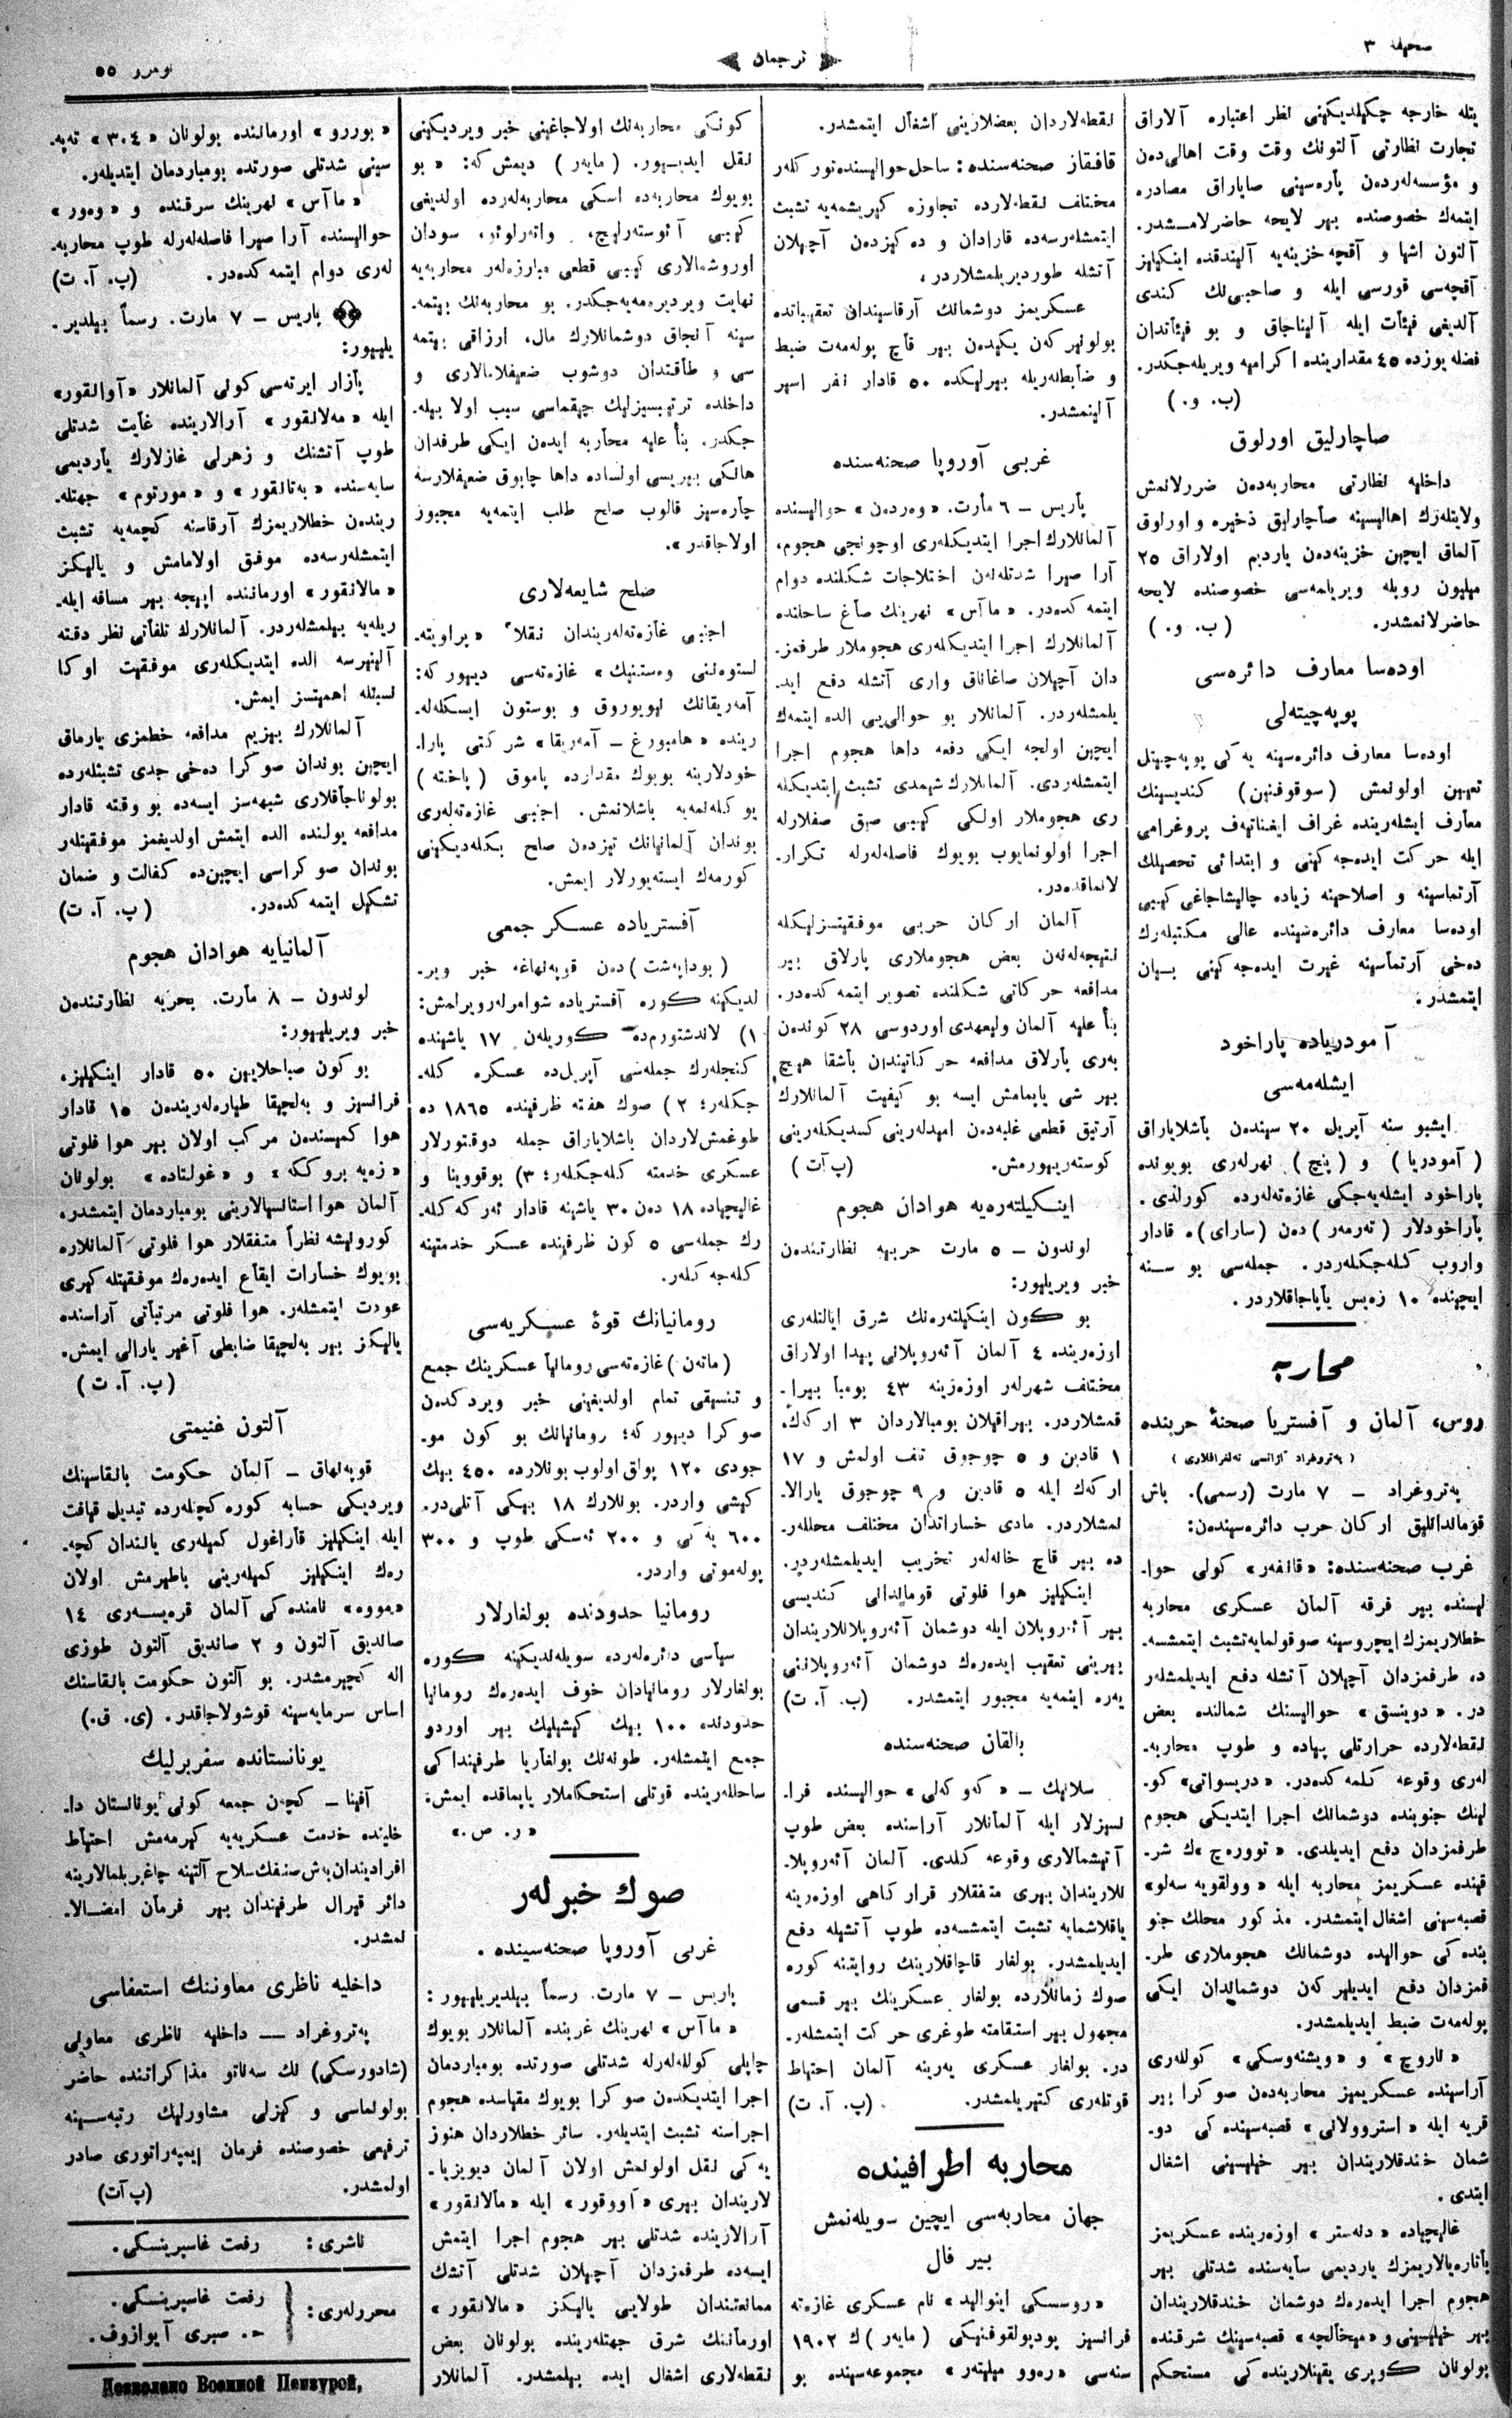 صحيفه ٣
ترجمان
نومرو ٥٥
يتله خارجه چكيلديكينى نظر اعتباره آلاراق
تجارت نظارتى آلتونك وقت وقت اهالى‌دن
و مؤسسه‌لەردن پاره‌سينى صاياراق مصادره
ايتمەك خصوصنده بير لايحه حاضرلامشدر.
آلتون اشيا و آقچه خزينه‌يه آليندقده اينكيليز
آقچه‌سى قورسى ايله و صاحبى‌نك كندى
آلديغى فيئات ايله آليناجاق و بو فيئاتدان
فضله يوزده ٤٥ مقدارينده اكراميه ويريله‌جكدر.
(ب. و.)
صاچارليق اورلوق
داخليه نظارتى محاربه‌دەن ضررلانمش
ولايتلەرك اهاليسينه صاچارليق ذخيره و اورلوق
آلماق ايچين خزينه‌دەن يارديم اولاراق ٢٥
ميليون روبله ويريلمه‌سى خصوصنده لايحه
حاضرلانمشدر. (ب. و.)
اوده‌سا معارف دائره‌سى
پوپه‌چيته‌لى
اوده‌سا معارف دائره‌سينه يه‌كى پوپه‌چيتل
تعيين اولونمش (سوقوفنين) كنديسينك
معارف ايشلەرينده غراف ايغناتيەف پروغرامى
ايله حركت ايده‌جه‌كينى و ابتدائى تحصيلك
آرتماسينه و اصلاحينه زياده چاليشاجاغى كيبى
اوده‌سا معارف دائره‌سينده عالى مكتبلەرك
ده‌خى آرتماسينه غيرت ايده‌جه‌كينى بيان
ايتمشدر.
آمودرياده پاراخود
ايشله‌مه‌سى
ايشبو سنه آپريل ٢٠ سيندەن باشلاياراق
(آمودريا) و (پنج) نهرلەرى بويونده
پاراخود ايشله‌يه‌جكى غازه‌تەلەرده كورلدى.
پاراخودلار (تەرمەز)دەن (ساراى)ه قادار
واروب كله‌جكلەردر. جمله‌سى بو سنه
ايچينده ١٠ رەيس ياپاجاقلاردر.
محاربه
روس، آلمان و آفستريا صحنۀ حربنده
(پەتروغراد آژانسى تەلغرافلارى)
پەتروغراد – ٧ مارت (رسمى). باش
قوماندانليق اركان حرب دائره‌سيندەن:
غرب صحنه‌سنده: «قانغەر» كولى حوا-
ليسنده بير فرقه آلمان عسكرى محاربه
خطلاريمزك ايچروسينه صوقولمايه تشبث ايتمشسه-
ده طرفمزدان آچيلان آتشله دفع ايديلمشلەر
در. «دوينسق» حواليسنك شمالنده بعض
نقطه‌لارده حرارتلى پياده و طوپ محاربه-
لەرى وقوعه كلمه‌كده‌در. «دريسواتى» كو-
لينك جنوبنده دوشمانك اجرا ايتديكى هجوم
طرفمزدان دفع ايديلدى. «توورەچ»ك شر-
قينده عسكريمز محاربه ايله «وولقويه سەلو»
قصبه‌سينى اشغال ايتمشدر. مذكور محلك جنو
بنده كى حواليده دوشمانك هجوملارى طر-
فمزدان دفع ايديلير كەن دوشماندان ايكى
پوله‌مەت ضبط ايديلمشدر.
«ناروچ» و «ويشنەوسكى» كوللەرى
آراسينده عسكريميز محاربه‌دەن صوكرا بير
قريه ايله «استروولانى» قصبه‌سينده كى دو-
شمان خندقلاريندان بير خيليسينى اشغال
ايتدى.
غاليچياده «دنەستر» اوزەرينده عسكريمز
ياتاره‌يالاريمزك يارديمى سايه‌سنده شدتلى بير
هجوم اجرا ايدەرەك دوشمان خندقلاريندان
بير خيليسينى و «ميخالچه» قصبه‌سينك شرقنده
بولونان كوپرى يقينلارينده كى مستحكم
نقطه‌لاردان بعضلارينى اشغال ايتمشدر.
قافقاز صحنه‌سنده: ساحل حواليسنده تور كلەر
مختلف نقطه‌لارده تجاوزه كيريشمه‌يه تشبث
ايتمشلەرسه‌ده قارادان و ده‌كيزدن آچيلان
آتشله طورديريلمشلاردر.
عسكريمز دوشمانك آرقاسيندان تعقيباتده
بولونير كەن يكيدەن بير قاچ پوله‌مەت ضبط
و ضابطلەريله بيرليكده ٥٠ قادار نفر اسير
آلينمشدر.
غربى آوروپا صحنه‌سنده
پاريس – ٦ مارت. «وەردون» حواليسنده
آلمانلارك اجرا ايتديكلەرى اوچونجى هجوم،
آرا صيرا شدتله‌نەن اختلاجات شكلنده دوام
ايتمه‌كده‌در. «ماآس» نهرينك صاغ ساحلنده
آلمانلارك اجرا ايتديكلەرى هجوملار طرفمز-
دان آچيلان صاغاناق وارى آتشله دفع ايد-
يلمشلەردر. آلمانلار بو حوالى‌يى الده ايتمەك
ايچين اولجه ايكى دفعه داها هجوم اجرا
ايتمشلەردى. آلمانلارك شيمدى تشبث ايتديكله
رى هجوملار اولكى كيبى صيق صفلارله
اجرا اولونمايوب بويوك فاصله‌لەرله تكرار-
لانماقده‌در.
آلمان اركان حربى موفقيتسزليكله
نتيجه‌لەنەن بعض هجوملارى پارلاق بير
مدافعه حركاتى شكلنده تصوير ايتمه‌كده‌در.
بناً عليه آلمان وليعهدى اوردوسى ٢٨ كوندەن
بەرى پارلاق مدافعه حركاتيندان باشقا هيچ
بير شى ياپمامش ايسه بو كيفيت آلمانلارك
آرتيق قطعى غلبه‌دەن اميدلەرينى كسديكلەرينى
كوستەرييورمش. (پ‌آت)
اينكيلتەره‌يه هوادان هجوم
لوندون – ٥ مارت حربيه نظارتندەن
خبر ويريليور:
بو كون اينكيلتەره‌نك شرق ايالتلەرى
اوزەرينده ٤ آلمان آئەروپلانى پيدا اولاراق
مختلف شهرلەر اوزەرينه ٤٣ بومبا بيرا-
قمشلاردر. بيراقيلان بومبالاردان ٣ اركەك،
١ قادين و ٥ چوجوق تلف اولمش و ١٧
اركەك ايله ٥ قادين و ٩ چوجوق يارالا-
نمشلاردر. مادى خساراتدان مختلف محللەر-
ده بير قاچ خانەلەر تخريب ايديلمشلەردر.
اينكيليز هوا فلوتى قوماندانى كنديسى
بير آئەروپلان ايله دوشمان آئەروپلانلاريندان
بيرينى تعقيب ايدەرەك دوشمان آئەروپلانينى
يەره اينمه‌يه مجبور ايتمشدر. (پ. آ. ت)
بالقان صحنه‌سنده
سلانيك – «كەوكەلى» حواليسنده فرا-
نسيزلار ايله آلمانلار آراسنده بعض طوپ
آتيشمالارى وقوعه كلدى. آلمان آئەروپلا-
نلاريندان بيرى متفقلار قراركاهى اوزەرينه
ياقلاشمايه تشبث ايتمشسه‌ده طوپ آتشيله دفع
ايديلمشدر. بولغار قاچاقلارينك روايتنه كوره
صوك زمانلارده بولغار عسكرينك بير قسمى
مجهول بير استقامته طوغرى حركت ايتمشلەر-
در. بولغار عسكرى يەرينه آلمان احتياط
قوتلەرى كتيريلمشدر. (پ. آ. ت)
محاربه اطرافينده
جهان محاربه‌سى ايچين سويله‌نمش
بير فال
«روسسكى اينواليد» نام عسكرى غازه‌ته
فرانسيز پودپولقوفنيكى (مايەر)ك ١٩٠٢
سنه‌سى «رەوو ميليتەر» مجموعه‌سينده بو
كونكى محاربه‌نك اولاجاغينى خبر ويرديكينى
نقل ايدييور. (مايەر) ديمش كه: «بو
بويوك محاربه‌ده اسكى محاربه‌لەرده اولديغى
كيبى آئوستەرليچ، واتەرلوئو، سودان
اوروشمالارى كيبى قطعى مبارزه‌لەر محاربه‌يه
نهايت ويرديره‌مه‌يه‌جكدر. بو محاربه‌نك بيتمه-
سينه آنجاق دوشمانلارك مال، ارزاقى بيتمه
سى و طاقتدان دوشوب ضعيفلامالارى و
داخلده ترتيبسيزليك چيقماسى سبب اولا بيله-
جكدر. بناً عليه محاربه ايدەن ايكى طرفدان
هانكى بيريسى اولساده داها چابوق ضعيفلارسه
چاره‌سيز قالوب صلح طلب ايتمه‌يه مجبور
اولاجاقدر».
صلح شايعه‌لارى
اجنبى غازه‌ته‌لەريندان نقلاً «پراويتە-
لستوەننى وەستنيك» غازه‌ته‌سى دييور كه:
آمەريقانك نيويوروق و بوستون ايسكله‌لە-
رينده «هامبورغ – آمەريقا» شركتى پارا-
خودلارينه بويوك مقدارده پاموق (پاخته)
يوكله‌نمه‌يه باشلانمش. اجنبى غازه‌ته‌لەرى
بوندان آلمانيانك تيزدەن صلح بكله‌ديكينى
كورمەك ايسته‌يورلار ايمش.
آفسترياده عسكر جمعى
(بوداپەشت)دەن قوپەنهاغه خبر وير-
لديكينه كوره آفسترياده شو امرلەر ويرلمش:
١) لاندشتورم‌ده كوريلەن ١٧ ياشينده
كنجلەرك جمله‌سى آپريل‌ده عسكره كله-
جكلەر؛ ٢) صوك هفته ظرفينده ١٨٦٥ ده
طوغمش‌لاردان باشلاياراق جمله دوقتورلار
عسكرى خدمته كله‌جكلەر؛ ٣) بوقووينا و
غاليچياده ١٨ دەن ٣٠ ياشينه قادار ئەركه‌كله-
رك جمله‌سى ٥ كون ظرفينده عسكر خدمتينه
كله‌جه‌كلەر.
رومانيانك قوۀ عسكريه‌سى
(ماتەن) غازه‌ته‌سى رومانيا عسكرينك جمع
و تنسيقى تمام اولديغينى خبر ويرد كدەن
صوكرا دييور كه؛ رومانيانك بو كون مو-
جودى ١٢٠ پولق اولوب بونلارده ٤٥٠ بيك
كيشى واردر. بونلارك ١٨ بيكى آتلى‌در.
٦٠٠ يه‌كى و ٢٠٠ ئەسكى طوپ و ٣٠٠
پوله‌موتى واردر.
رومانيا حدودنده بولغارلار
سياسى دائره‌لەرده سويله‌نديكينه كوره
بولغارلار رومانيادان خوف ايدەرەك رومانيا
حدودنده ١٠٠ بيك كيشيليك بير اوردو
جمع ايتمشلەر. طونه‌نك بولغاريا طرفينداكى
ساحللەرينده قوتلى استحكاملار ياپماقده ايمش.
«ر. ص.»
صوك خبرلەر
غربى آوروپا صحنه‌سينده.
پاريس – ٧ مارت. رسماً بيلديريليور:
«ماآس» نهرينك غربنده آلمانلار بويوك
چاپلى كوللەلەرله شدتلى صورتده بومباردمان
اجرا ايتديكدەن صوكرا بويوك مقياسده هجوم
اجراسنه تشبث ايتديلەر. سائر خطلاردان هنوز
يه‌كى نقل اولونمش اولان آلمان ديويزيا-
لاريندان بيرى «آووقور» ايله «مالانقور»
آرالارينده شدتلى بير هجوم اجرا ايتمش
ايسه‌ده طرفمزدان آچيلان شدتلى آتشك
ممانعتندان طولايى يالكيز «مالانقور»
اورماننك شرق جهتلەرينده بولونان بعض
نقطه‌لارى اشغال ايده بيلمشدر. آلمانلار
«بوررو» اورمانتده بولونان «٣٠٤» تەپه-
سينى شدتلى صورتده بومباردمان ايتديلەر.
«ماآس» نهرينك سرقنده و «وەور»
حواليسنده آرا صيرا فاصله‌لەرله طوپ محاربه-
لەرى دوام ايتمه‌كده‌در. (پ. آ. ت)
پاريس – ٧ مارت. رسماً بيلدير-
يلييور:
پازار ايرته‌سى كونى آلمانلار «آوانقور»
ايله «مەلانقور» آرالارينده غايت شدتلى
طوپ آتشنك و زهرلى غازلارك يارديمى
سايه‌سنده «بەتانقور» و «مورتوم» جهتله-
ريندەن خطلاريمزك آرقاسنه كچمه‌يه تشبث
ايتمشلەرسه‌ده موفق اولامامش و يالكيز
«مالانقور» اورماننده اييجه بير مسافه ايله-
ريله‌يه بيلمشلەردر. آلمانلارك تلفاتى نظر دقته
آلينيرسه الده ايتديكلەرى موفقيت اوكا
نسبتله اهميتسز ايمش.
آلمانلارك بيزيم مدافعه خطمزى يارماق
ايچين بوندان صوكرا ده‌خى جدى تشبثلەرده
بولوناجاقلارى شبهه‌سز ايسه‌ده بو وقته قادار
مدافعه يولنده الده ايتمش اولديغمز موفقيتلەر
بوندان صوكراسى ايچين‌ده كفالت و ضمان
تشكيل ايتمه‌كده‌در. (پ. آ. ت)
آلمانيايه هوادان هجوم
لوندون – ٨ مارت. بحريه نظارتندەن
خبر ويريلييور:
بو كون صباحلايين ٥٠ قادار اينكيليز،
فرانسيز و بەلچيقا طياره‌لەريندەن ١٥ قادار
هوا كميسندەن مركب اولان بير هوا فلوتى
«زەيه بروككه» و «غولتاده» بولونان
آلمان هوا استانسيالارينى بومباردمان ايتمشدر.
كورونيشه نظراً متفقلار هوا فلوتى آلمانلاره
بويوك خسارات ايقاع ايدەرەك موفقيتله كيرى
عودت ايتمشلەر. هوا فلوتى مرتباتى آراسنده
يالكيز بير بەلچيقا ضابطى آغير يارالى ايمش.
(پ. آ. ت)
آلتون غنيمتى
قوپەنهاق – آلمان حكومت بانقاسينك
ويرديكى حسابه كوره كچنلەرده تبديل قيافت
ايله اينكيليز قاراغول كميلەرى يانندان كچه-
رەك اينكيليز كميلەرينى باطيرمش اولان
«مووه» نامنده كى آلمان قره‌يسەرى ١٤
صانديق آلتون و ٢ صانديق آلتون طوزى
اله كچيرمشدر. بو آلتون حكومت بانقاسنك
اساس سرمايه‌سينه قوشولاجاقدر. (ى. ق.)
يونانستانده سفربرليك
آفينا – كچەن جمعه كونى يونانستان دا-
خلينده خدمت عسكريه‌يه كيرمه‌مش احتياط
افراديندان بش صنفك سلاح آلتينه چاغيريلمالارينه
دائر قيرال طرفيندان بير فرمان امضالا-
نمشدر.
داخليه ناظرى معاوننك استعفاسى
پەتروغراد — داخليه ناظرى معاونى
(شادورسكى) نك سەناتو مذاكراتنده حاضر
بولونماسى و كيزلى مشاورليك رتبه‌سينه
ترفيعى خصوصنده فرمان ايمپەراتورى صادر
اولمشدر. (پ‌آت)
ناشرى: رفعت غاسپرينسكى.
محررلەرى: رفعت غاسپرينسكى.
ح. صبرى آيوازوف.
Дозволено Военной Цензурой,